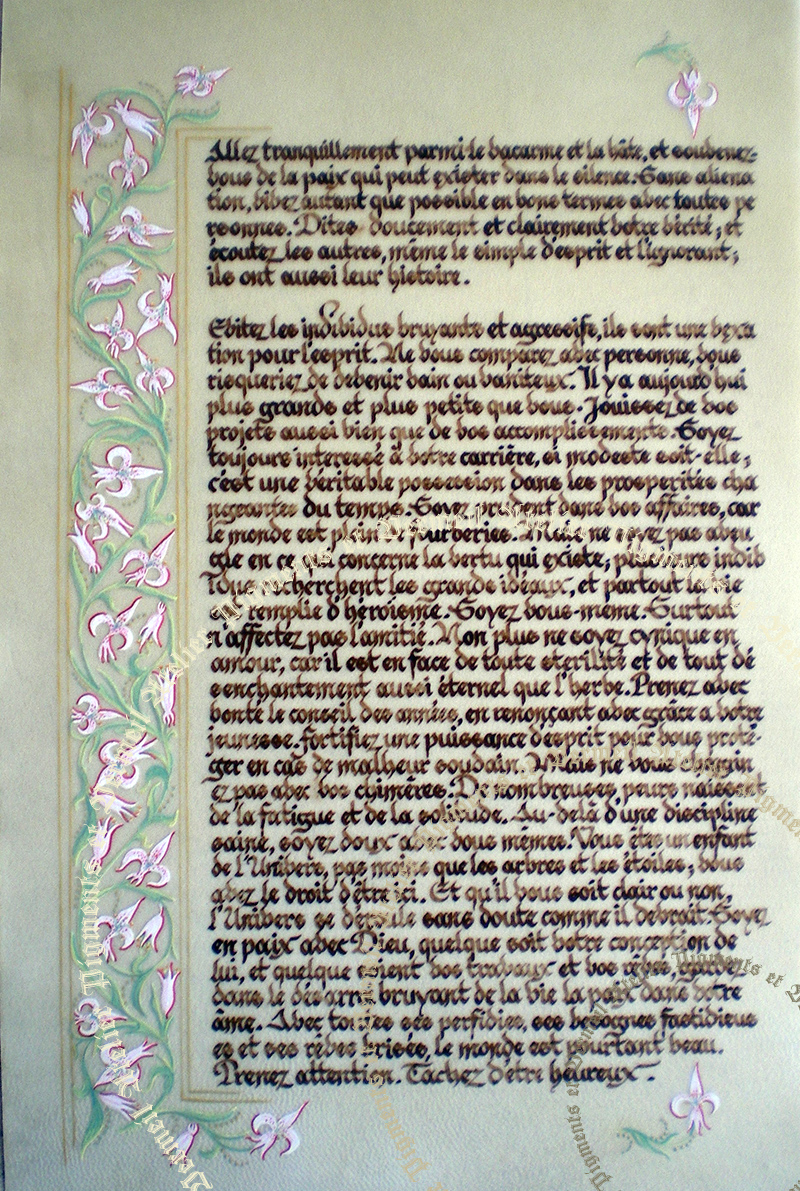 Allez tranquillement parmi le vacarme et la hâte, et souvenez-
vous de la paix qui peut exister dans le silence. Sans aliena
tion, vivez autant que possible en bons termes avec toutes pe
rsonnes. Dites doucement et clairement votre vérité; et
écoutez les autres, même le simple d'esprit et l'ignorant;
ils ont aussi leur histoire.
Evitez les individus bruyants et agressifs, ils sont une vexa
tion pour l'esprit. Ne vous comparez avec personne, vous
risqueriez de devenir vain ou vaniteux. Il y a aujourd hui
plus grands et plus petits que vous. Jouissez de vos
projets aussi bien que de vos accomplissements. Soyez
toujours interessé à votre carrière, si modeste soit-elle;
c'est une véritable possession dans les prosperités cha
ngeantes du temps. Soyez prudent dans vos affaires, car
le monde est plein de fourberies. Mais ne soyez pas aveu
gle en ce qui concerne la vertu qui existe; plusieurs indiv
idus recherchent les grands idéaux, et partout la vie
est remplie d'héroïsme. Soyez vous-meme. Surtout
n'affectez pas l'amitié. Non plus ne soyez cynique en
amour, car il est en face de toute sterilité et de tout dé
senchantement aussi éternel que l'herbe. Prenez avec
bonté le conseil des années, en renonçant avec grâce a votre
jeunesse. fortifiez une puissance d'esprit pour vous proté-
ger en cas de malheur soudain. Mais ne vous chagrin
ez pas avec vos chimères. De nombreuses peurs naissent
de la fatigue et de la solitude. Au-delà d'une discipline
saine, soyez doux avec vous mêmes. Vous êtes un enfant
de l'Univers, pas moins que les arbres et les étoiles; vous
avez le droit d'être ici. Et qu'il vous soit clair ou non,
l'Univers se déroule sans doute comme il devrait. Soyez
en paix avec Dieu, quelque soit votre conception de
lui, et quelque soient vos travaux et vos rêves, gardez
dans le désarroi bruyant de la vie la paix dans votre
âme. Avec toutes ses perfidies, ses besognes fastidieus
es et ses rêves brisés, le monde est pourtant beau.
Prenez attention. Tachez d'être heureux.